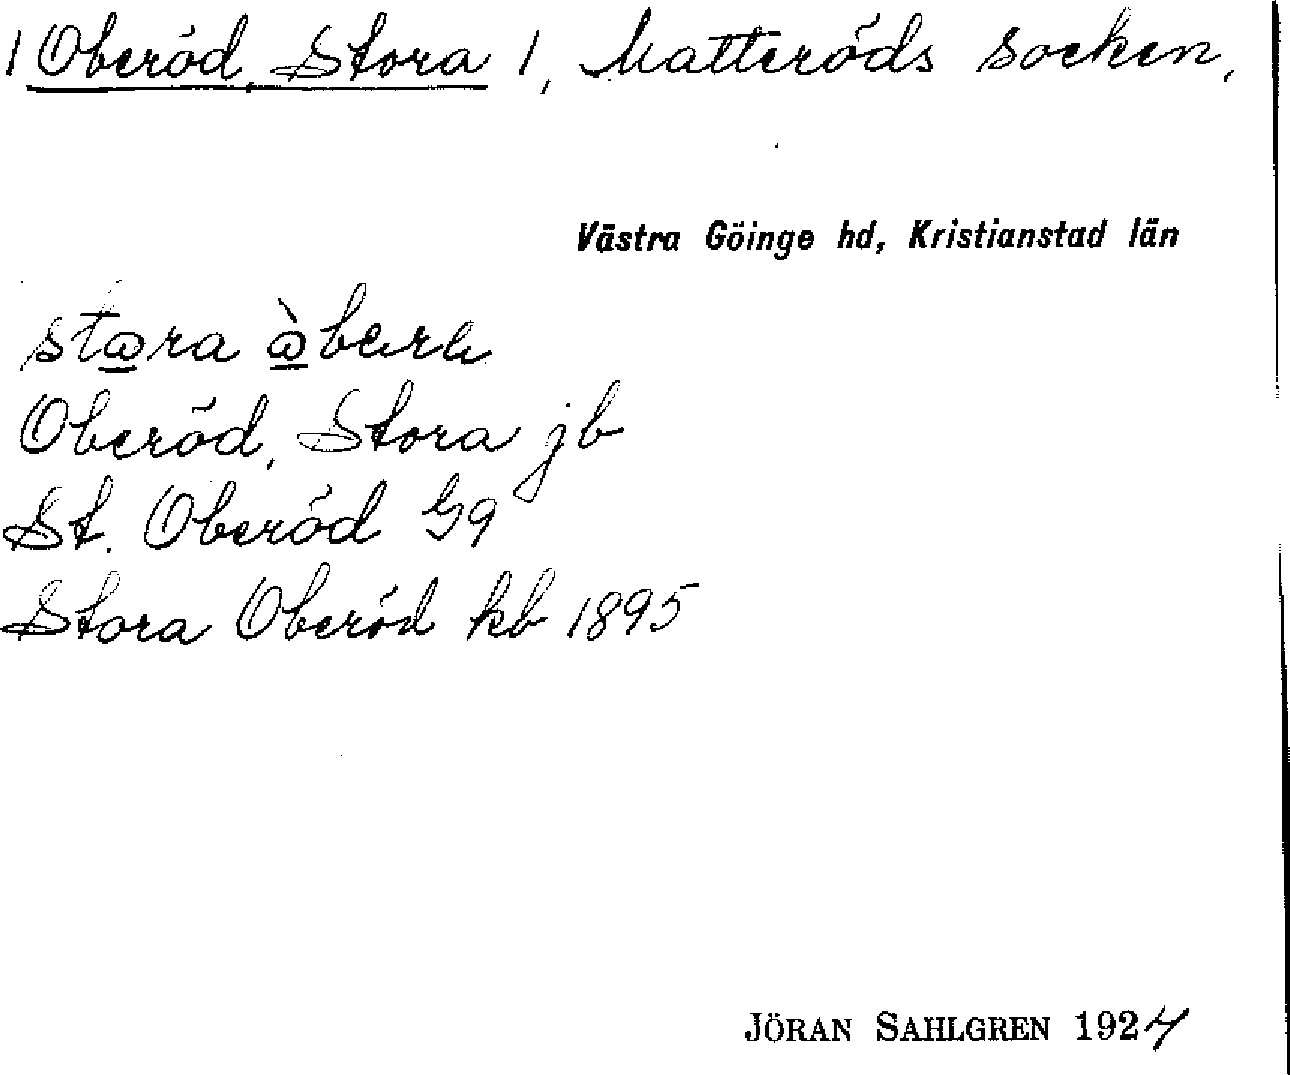 /Oberöd, Stora/, Matteröds socken,
Västra Göinge hd, Kristianstad län
Oberöd, Stora jb
St. Oberöd
Stora Oberöd kb 1895
JÖRAN SAHLGREN 1924